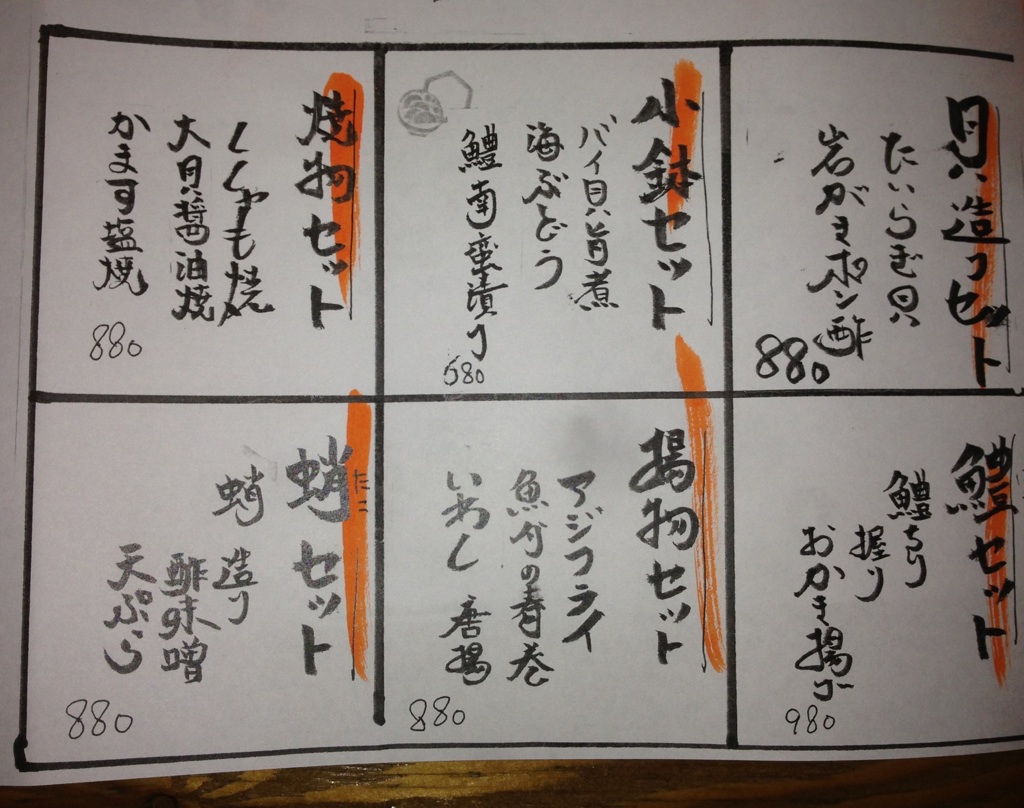 貝造りセット
たいらぎ貝
岩がきポン酢
880
小鉢セット
バイ貝旨煮
海ぶどう
鱧南蛮漬け
580
焼物セット
ししゃも焼
大貝醤油焼
かます塩焼
880
鱧セット
鱧ちり
握り
おかき揚げ
980
揚物セット
アジフライ
魚介の春巻
いわし 唐揚
880
蛸セット
たこ
蛸 造り
酢味噌
天ぷら
880